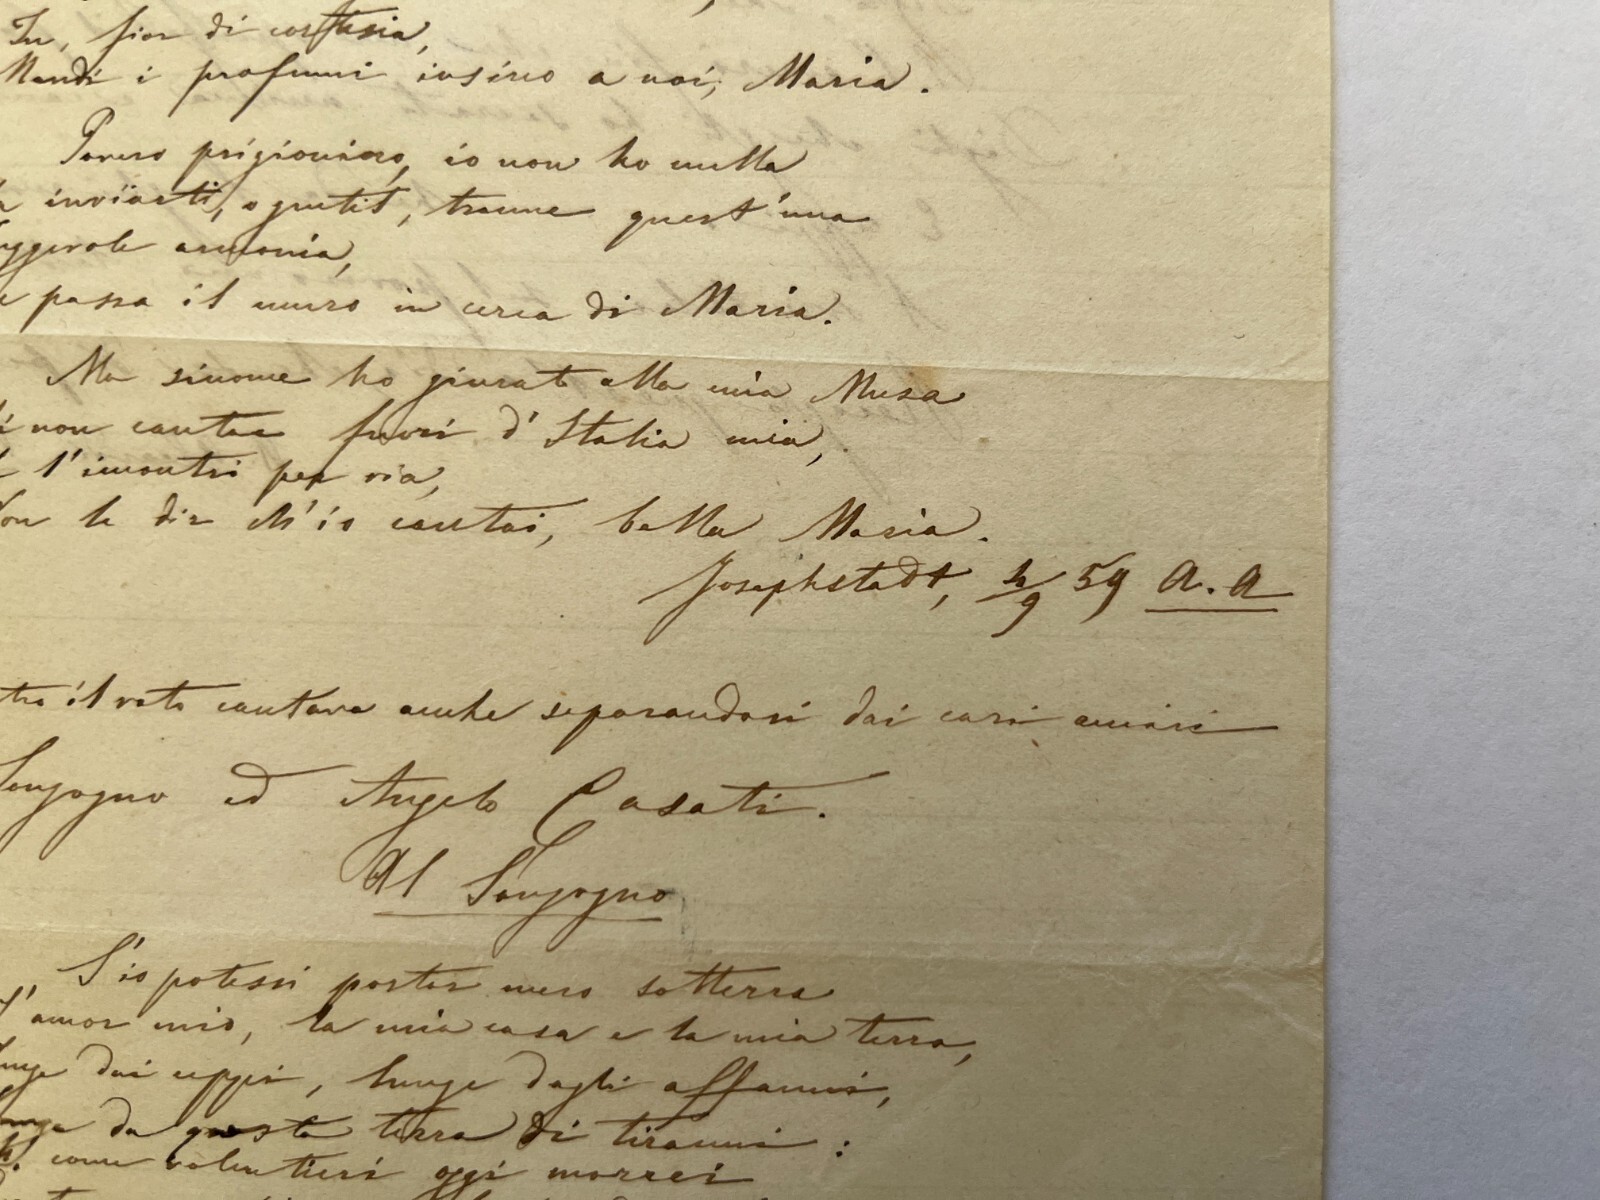 Tu, fior di cortesia,
Mandi i profumi insino a noi, Maria.
Povero prigioniero, io non ho nulla
inviarti, o gentil, tranne quest'una
armonia,
passa il muro in cerca di Maria.
Ma siccome ho giurato alla mia Musa
di non cantar fuori d'Italia mia,
l'incontri per via,
Non le dir ch'io cantai, bella Maria.
Josephstadt, 59 A. A
il vate cantava anche separandosi dai cari amici
Sonzogno ed Angelo Casati.
Al Sonzogno
S'io potessi portar meco sotterra
L'amor mio, la mia casa e la mia terra,
Lunge dai ceppi, lunge dagli affanni,
Lunge da questa terra di tiranni:
come volentieri oggi morrei